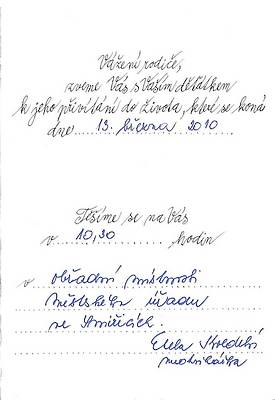 Vážení rodiče,
zveme Vás s Vaším děťátkem
k jeho přivítání do života, které se koná
dne 13. března 2010
Těšíme se na Vás
v 10,30 hodin
v obřadní místnosti
Městského úřadu
ve Smiřicích.
matrikářka